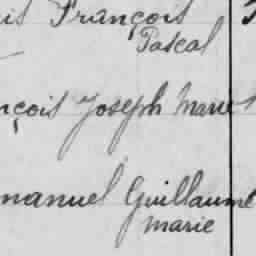 is François
Pascal
nçois Joseph Marie
manuel Guillaume
marie